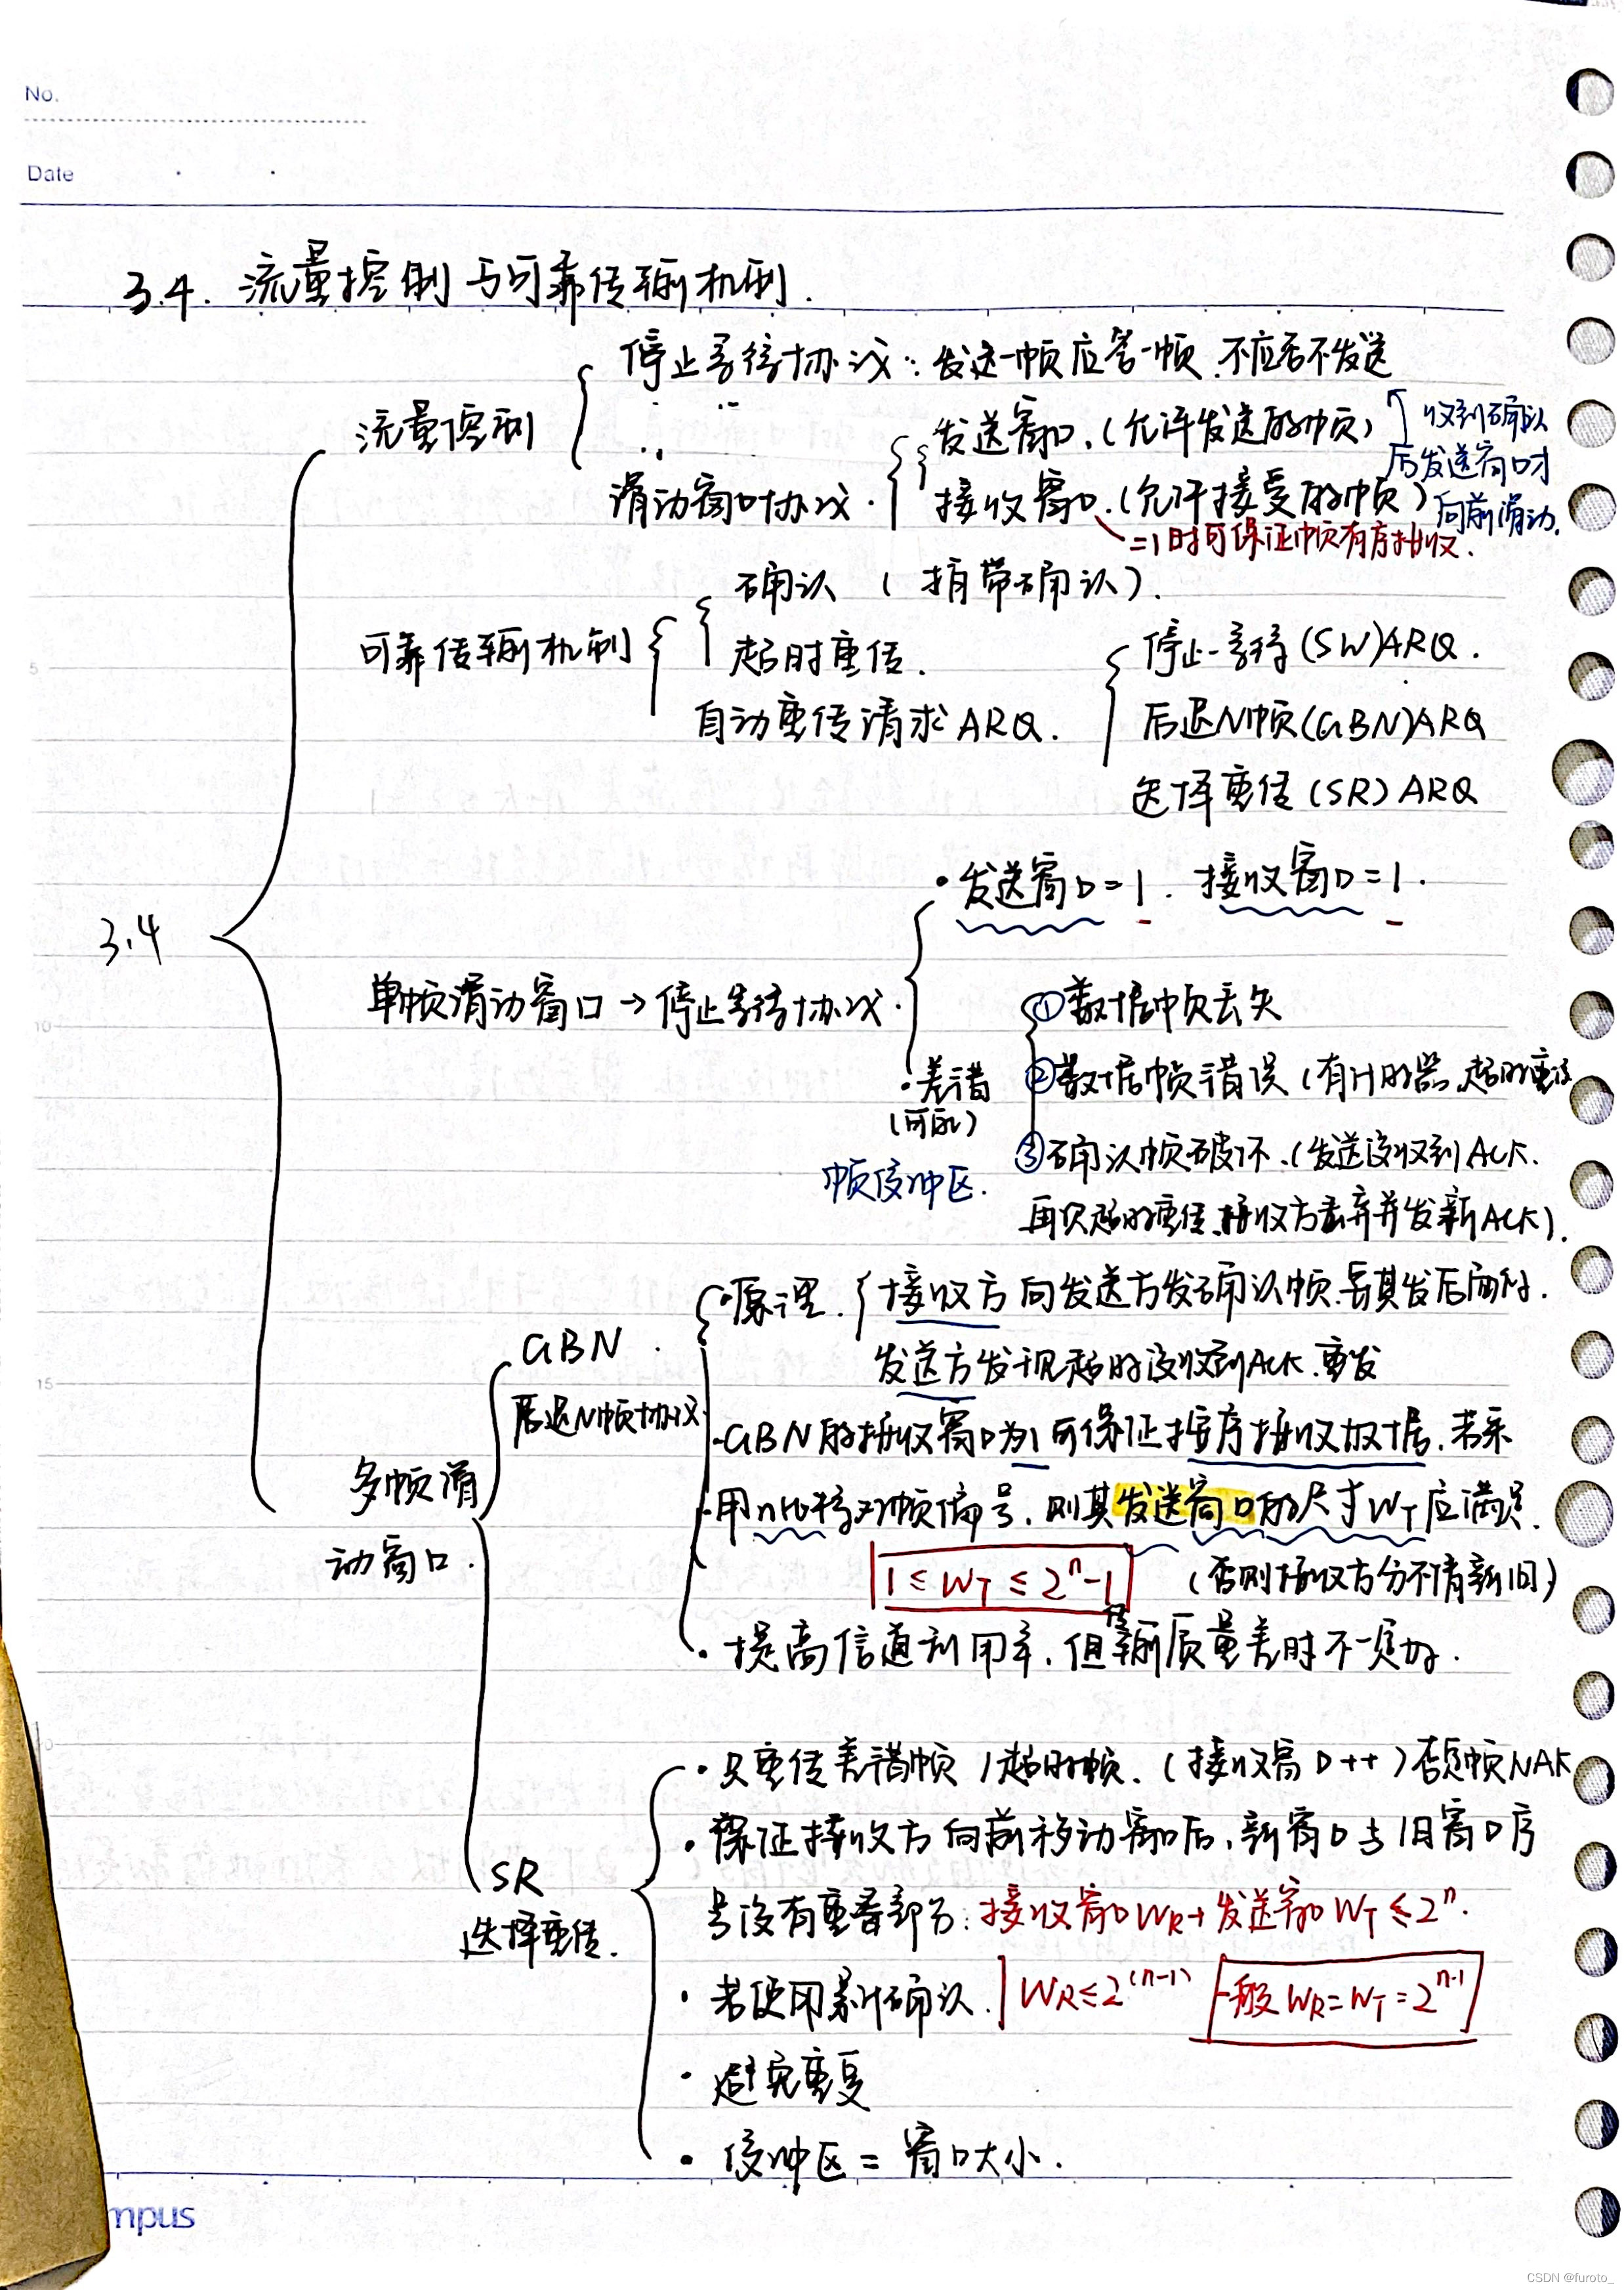 No.
Date
3.4. 流量控制与可靠传输机制.
停止等待协议：发送一帧应答一帧.不应答不发送
流量控制
发送窗口.(允许发送的帧) 收到确认
后发送窗口才
滑动窗口协议. 接收窗口.(允许接受的帧) 向前滑动.
=1时可保证帧有序接收.
确认 (捎带确认).
可靠传输机制 超时重传. 停止-等待(SW)ARQ.
自动重传请求ARQ. 后退N帧(GBN)ARQ
选择重传(SR)ARQ
·发送窗口=1. 接收窗口=1.
3.4
单帧滑动窗口→停止等待协议. ①数据帧丢失
·差错 ②数据帧错误(有计时器.超时重传
(可能)
③确认帧破坏.(发送没收到ACK.
帧缓冲区.
再次超时重传.接收方丢弃并发新ACK).
·原理. 接收方向发送方发确认帧.要其发后面的.
GBN.
发送方发现超时没收到ACK.重发
后退N帧协议 ·GBN的接收窗口为1可保证按序接收数据.若采
多帧滑 ·用n比特对帧编号.则其发送窗口的尺寸WT应满足.
动窗口. 1≤WT≤2ⁿ-1 (否则接收方分不清新旧)
·提高信道利用率.但传输质量差时不一定好.
·只重传差错帧/超时帧.(接收窗口++)否定帧NAK
·保证接收方向前移动窗口后,新窗口与旧窗口序
SR
号没有重叠部分:接收窗口WR+发送窗口WT≤2ⁿ.
选择重传.
·若使用累计确认. WR≤2⁽ⁿ⁻¹⁾ 一般WR=WT=2ⁿ⁻¹
·避免重复
·缓冲区=窗口大小.
mpus
5
10
15
CSDN @furoto_